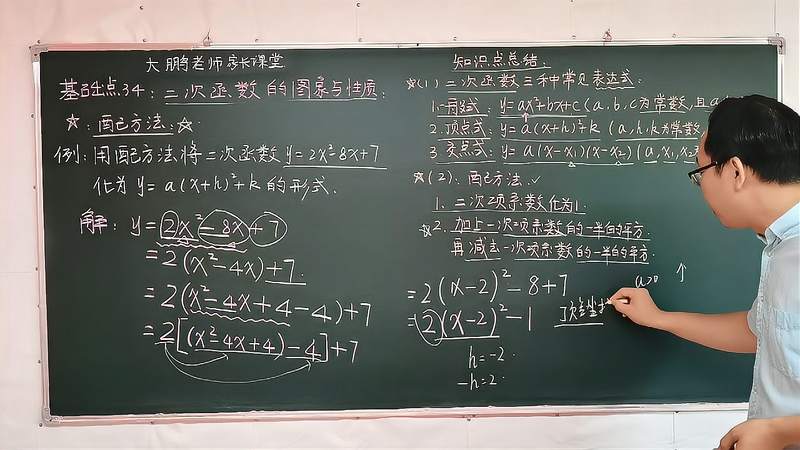 大鹏老师家长课堂
基础出点34：二次函数的图象与性质.
☆：配方法：☆
例：用配方法将二次函数y=2x²-8x+7
化为y=a(x+h)²+k的形式.
解：y=2x²-8x+7
=2(x²-4x)+7.
=2(x²-4x+4-4)+7
=2[(x²-4x+4)-4]+7
知识点总结：
☆(1)二次函数三种常见表达式：
1.一般式：y=ax²+bx+c(a.b.c为常数,且a
2.顶点式：y=a(x+h)²+k (a,h,k为常数,
3.交点式：y=a(x-x₁)(x-x₂)(a,x₁,x₂
☆(2)：配方法.✓
1.二次项系数化为1.
☆2.加上一次项系数的一半的平方.
再减去一次项系数的一半的平方.
=2(x-2)²-8+7
=2(x-2)²-1
h=-2.
-h=2.
a>0 ↑
顶点坐标